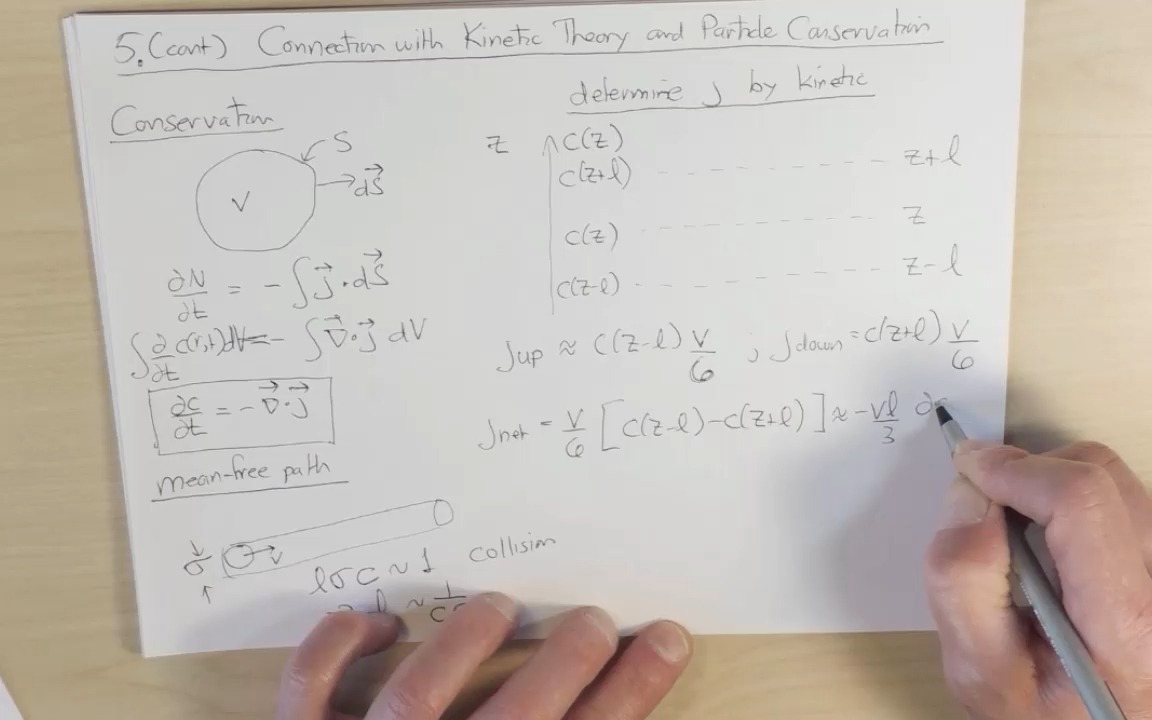 5.(cont) Connection with Kinetic Theory and Particle Conservation
Conservation
S
V
dS⃗
∂N/∂t = - ∫ j⃗ · dS⃗
∫ ∂/∂t c(r,t) dV = - ∫ ∇⃗ · j⃗ dV
∂c/∂t = - ∇⃗ · j⃗
mean-free path
σ v
lσc ~ 1 collision
l ~ 1/cσ
determine j by kinetic
z c(z)
c(z+l) z+l
c(z) z
c(z-l) z-l
Jup ≈ c(z-l) v/6 ; Jdown = c(z+l) v/6
Jnet = v/6 [c(z-l) - c(z+l)] ≈ - vl/3 ∂c